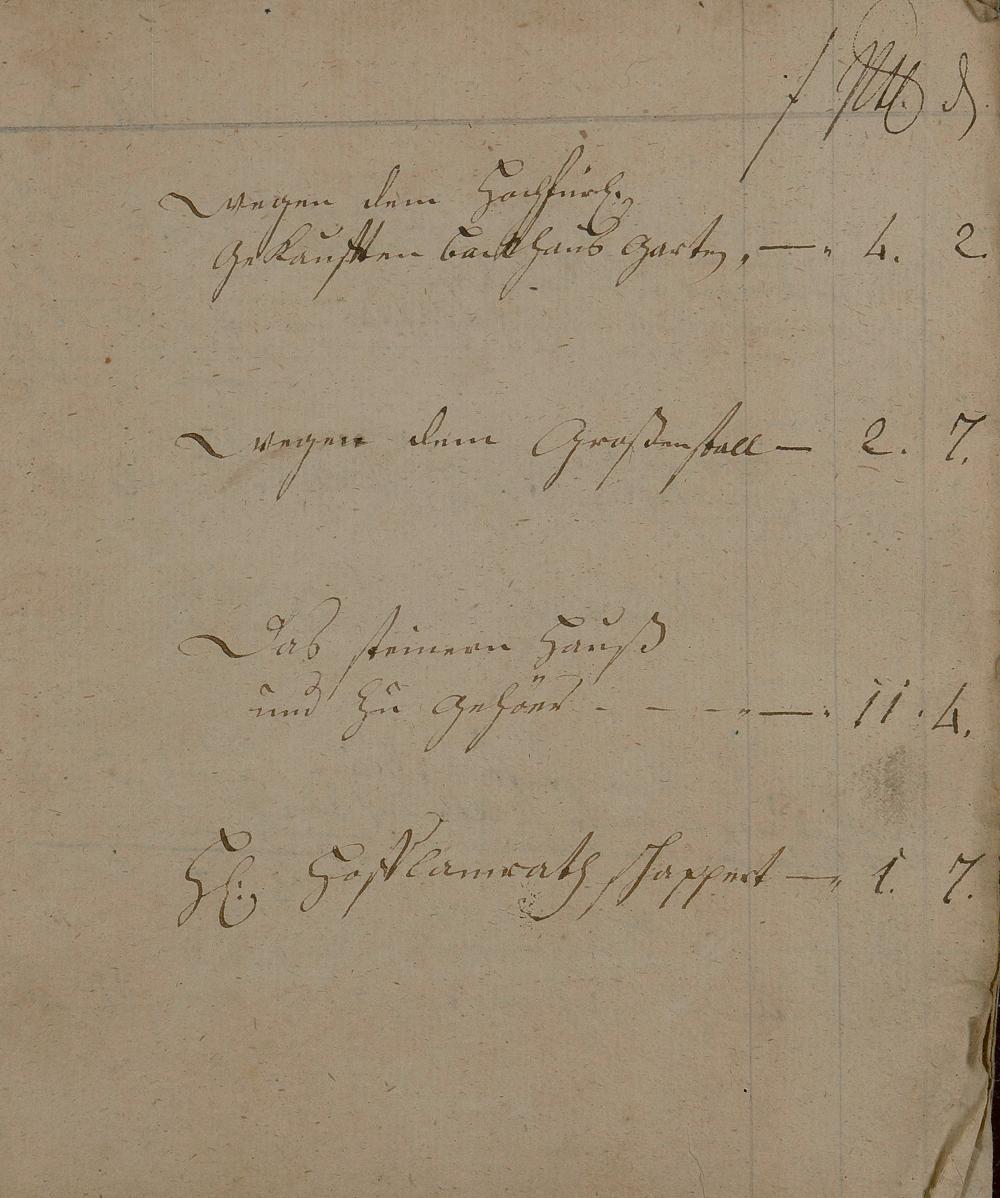 f Mtl. d
wegen dem Hochfürl.
Gekaufften backhaus garten „— „ 4. 2.
wegen dem Großenstall — 2. 7.
Das steinern Hauß
und Zu gehöer - — - „—„ 11. 4.
Hl: Hoff Camrath Schappert —„ 1. 7.